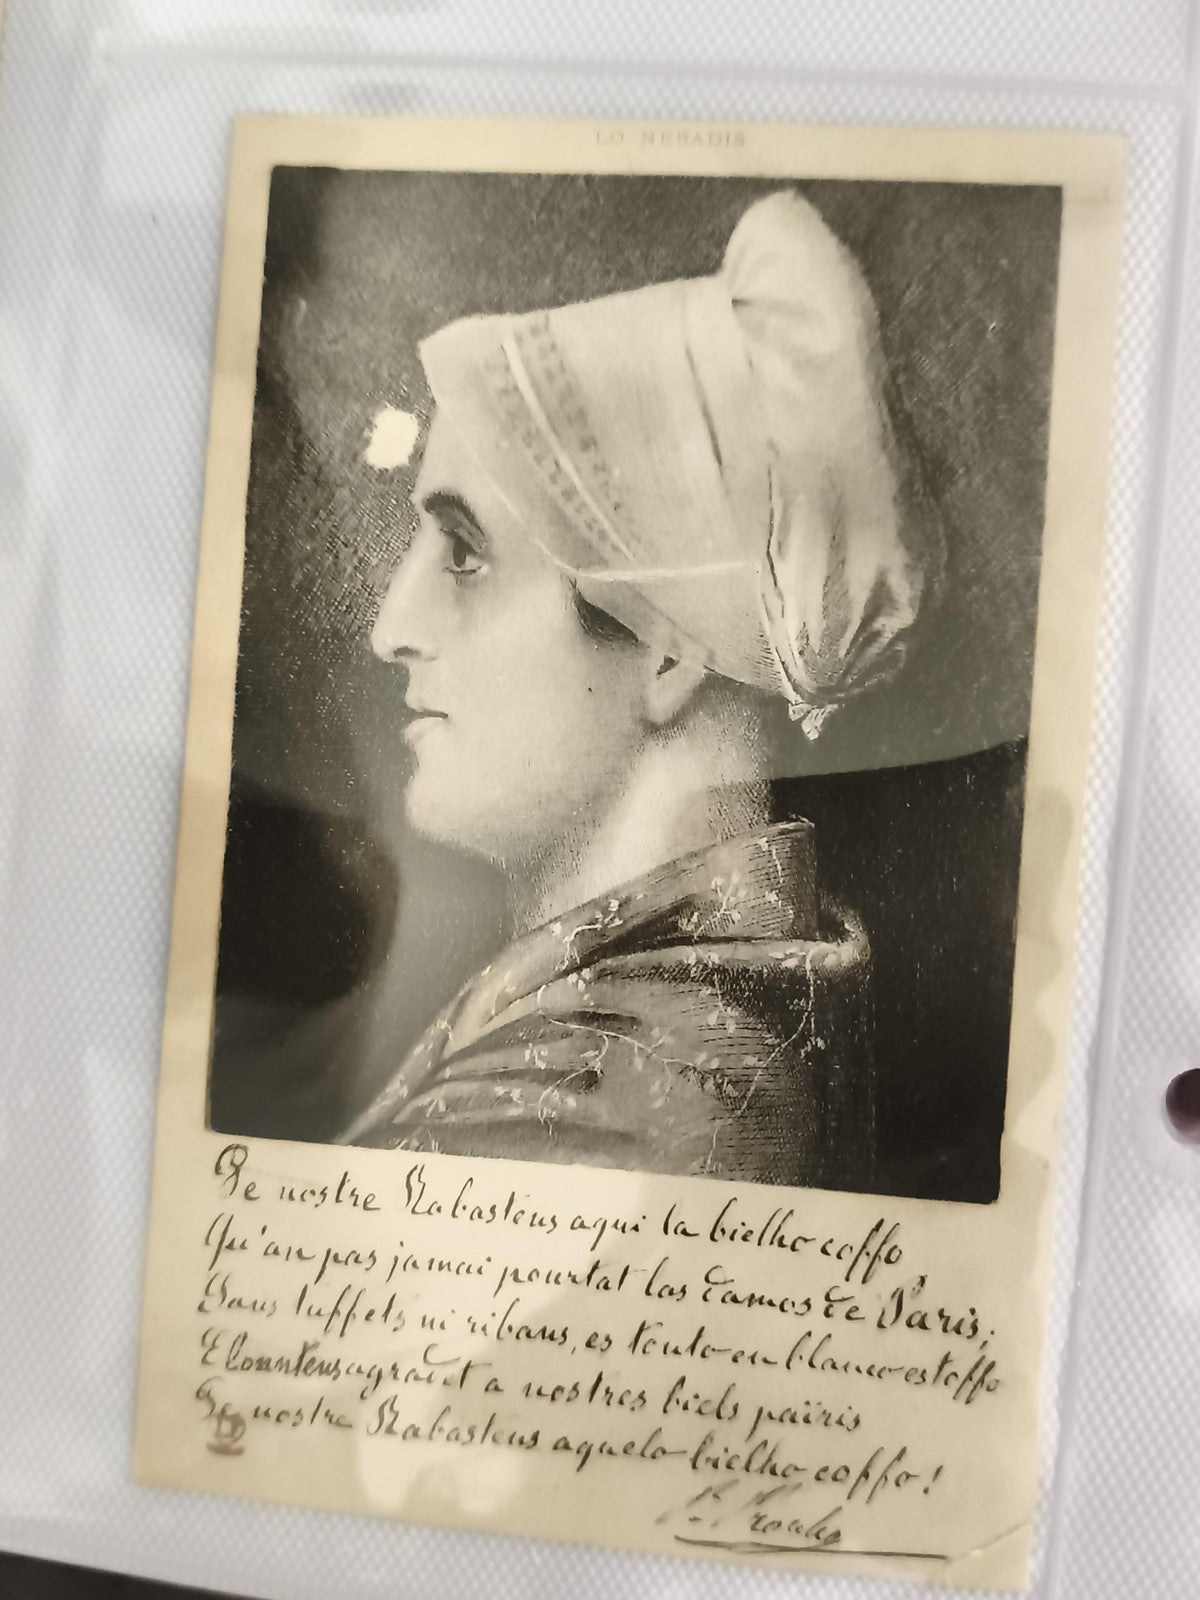 LO NEBADIS
De nostre Rabastens aqui la bielho coffo
Qu'an pas jamai pourtat las Damos de Paris;
Sans tuffets ni ribans, es touto en blanco estoffo
E lountens agradèt a nostres biels païris
De nostre Rabastens aquelo bielho coffo!